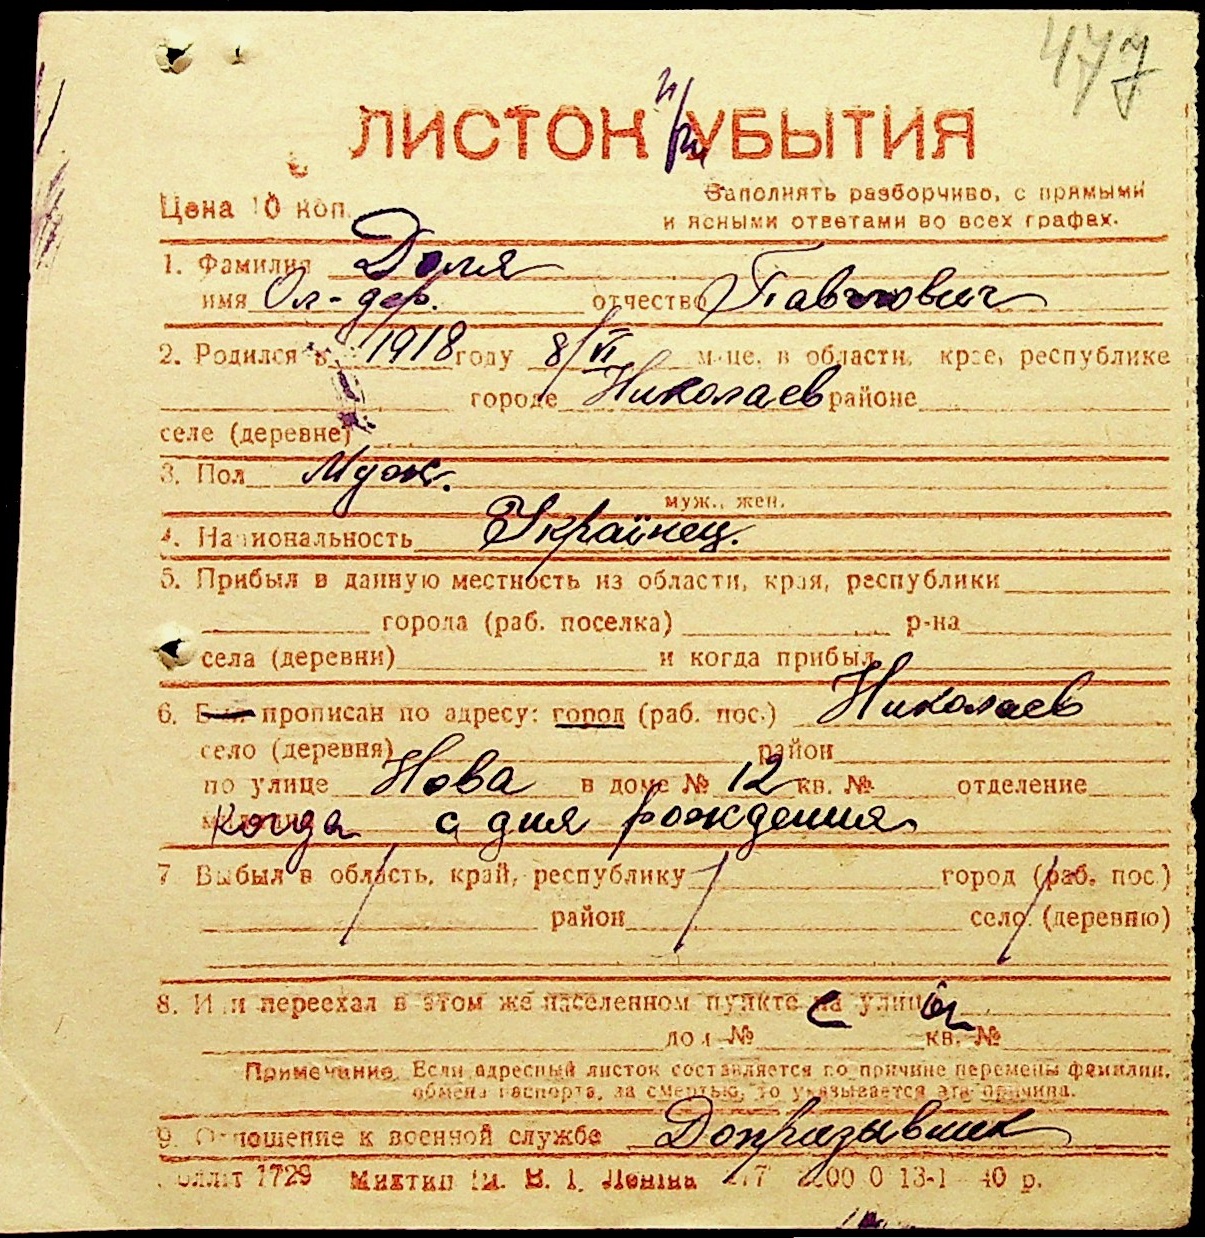 477
ЛИСТОК при УБЫТИЯ
Цена 10 коп.
Заполнять разборчиво, с прямыми
и ясными ответами во всех графах.
1. Фамилия Доля
имя Ол-дер. отчество Павлович
2. Родился в 1918 году 8/VI м-це, в области, крае, республике
городе Николаев районе
селе (деревне)
3. Пол Муж.
муж., жен.
4. Национальность Українец.
5. Прибыл в данную местность из области, края, республики
города (раб. поселка) р-на
села (деревни) и когда прибыл
6. Был прописан по адресу: город (раб. пос.) Николаев
село (деревня) район
по улице Нова в доме № 12 кв. № отделение
когда с дня рождения
7 Выбыл в область, край, республику город (раб. пос.)
район село (деревню)
8. Или переехал в этом же населенном пункте с улицы
дом № кв. №
Примечание. Если адресный листок составляется по причине перемены фамилии,
обмена паспорта, за смертью, то указывается эта причина.
9. Отношение к военной службе Допризывник
1729 Миктип ім. В. І. Леніна 13-1 40 р.